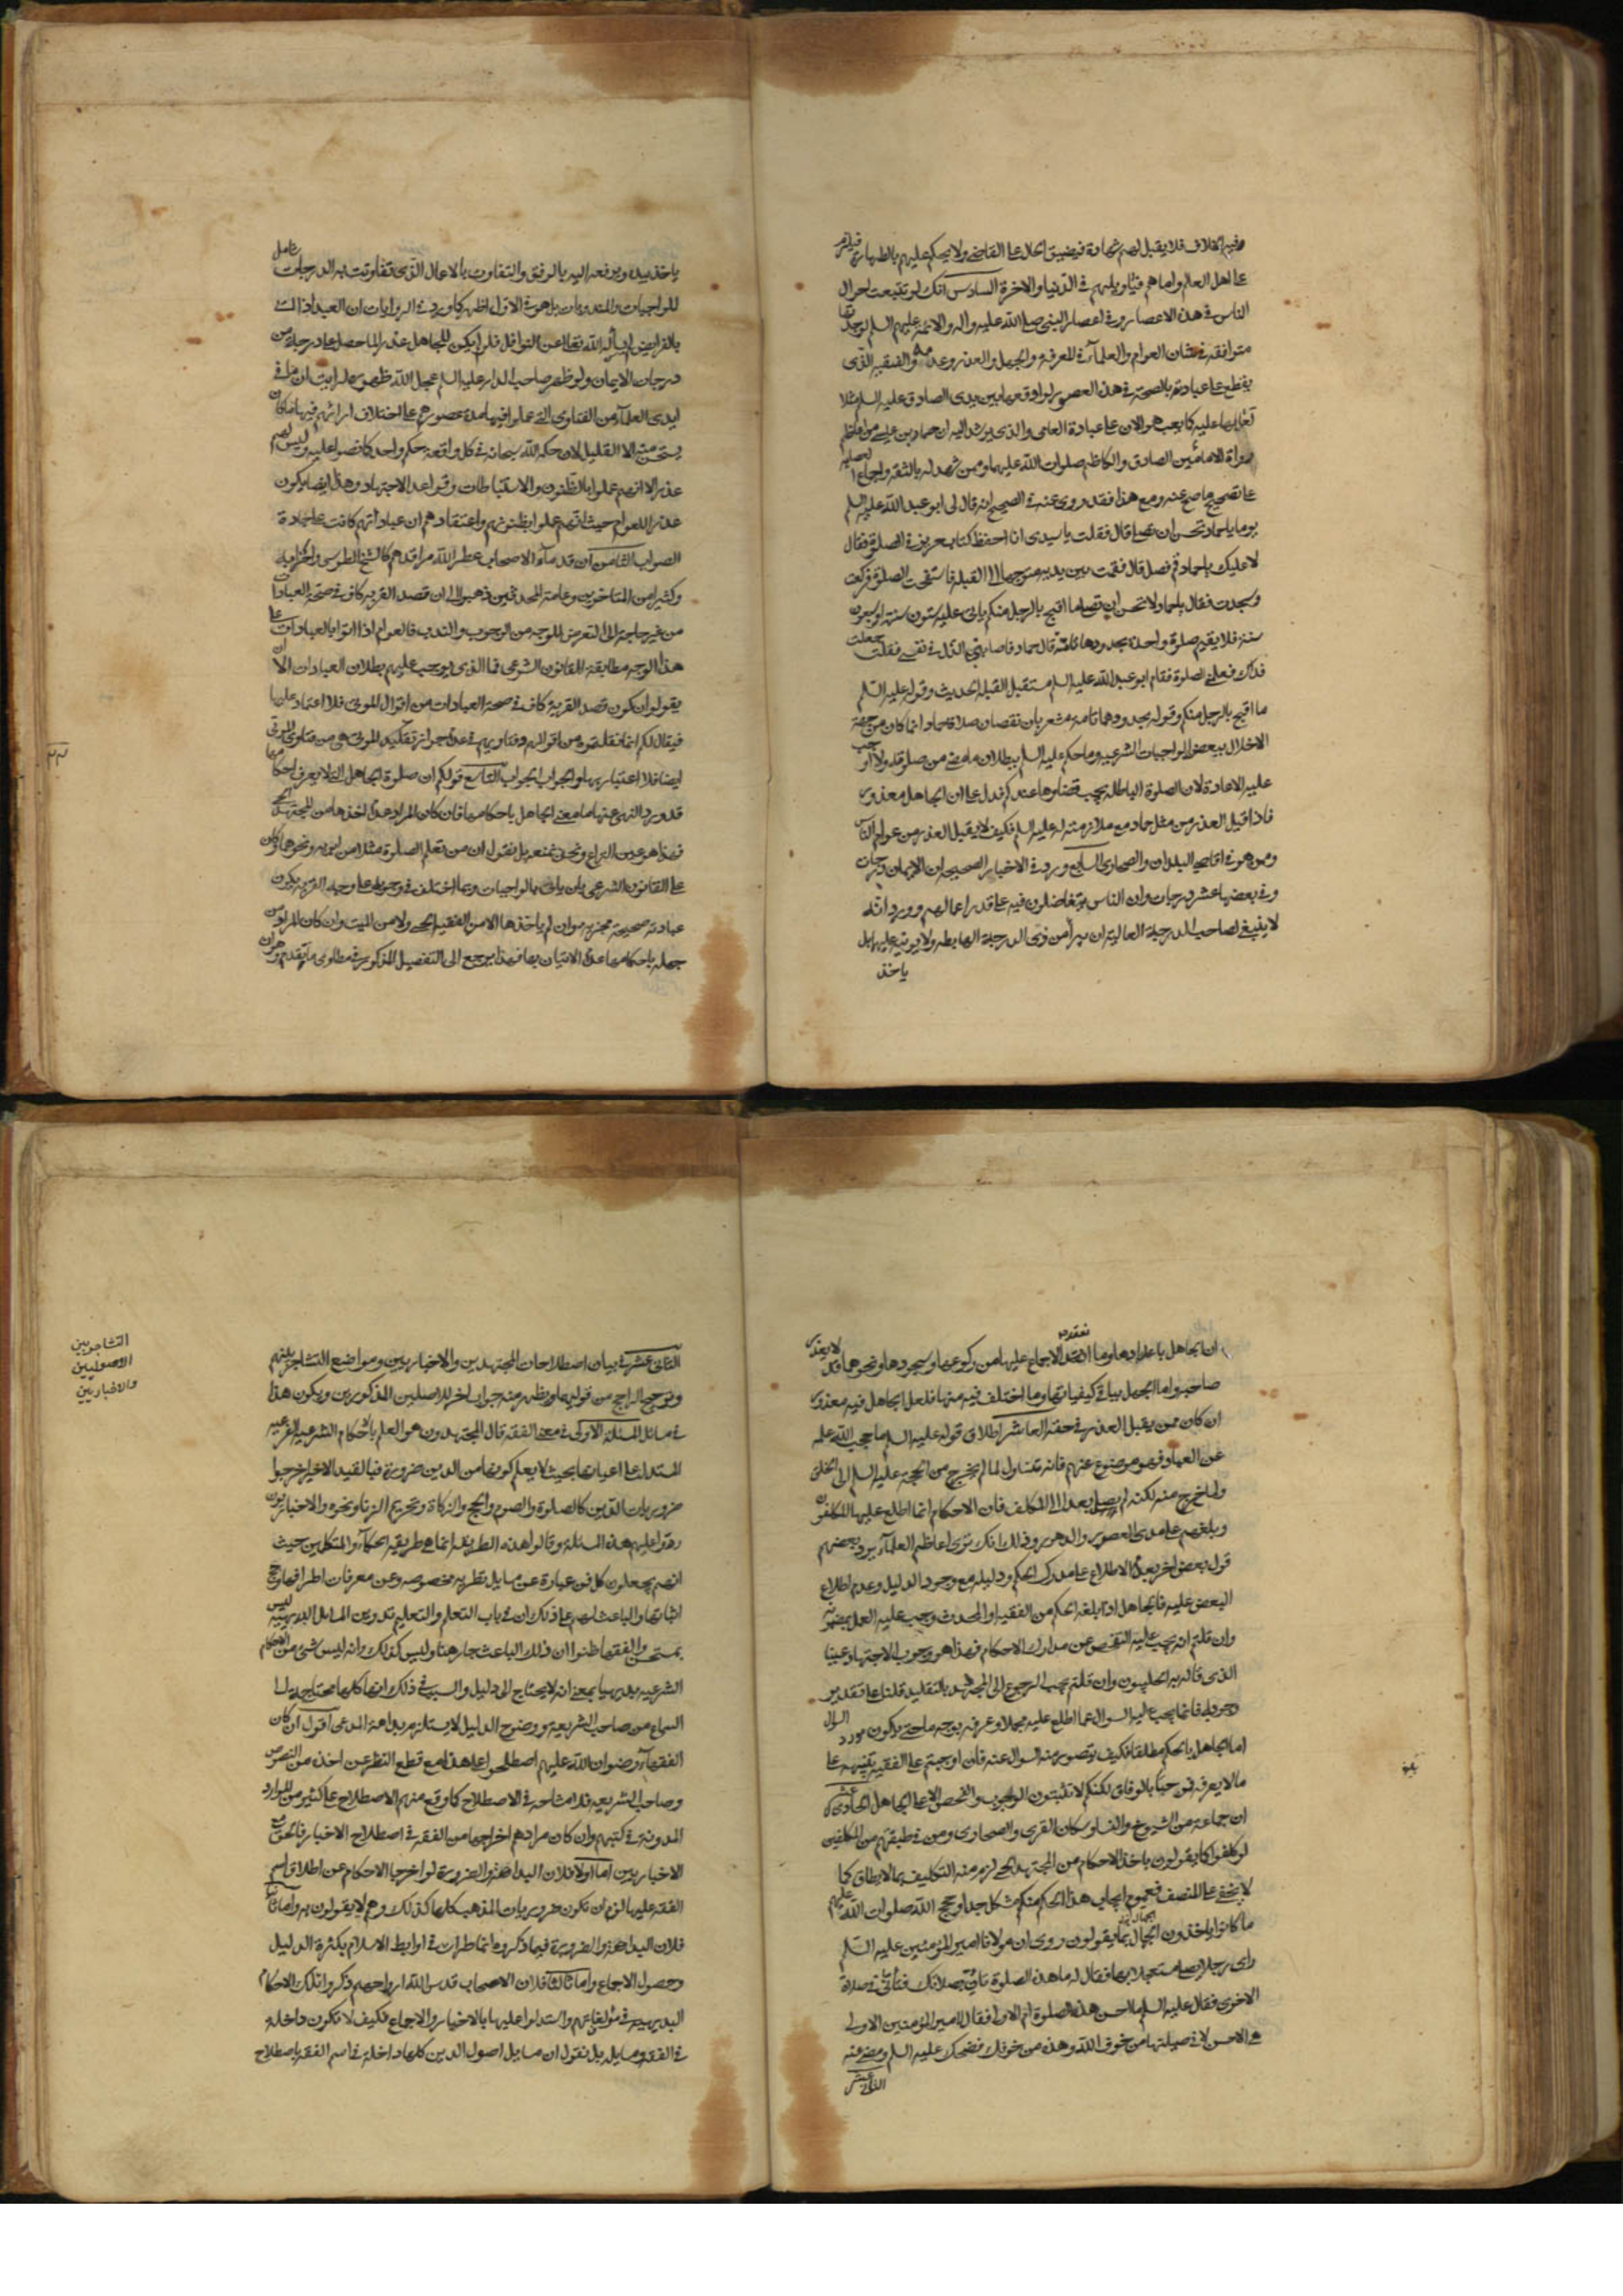 وفيه الخلاف فلا يقبل لهم شهادة فيضيق الحال على القاضي ولا يحكم عليهم بالطهارة فيلزم
على اهل العلم واما هم فيا ويلهم في الدنيا والاخرة السادس انك لو تتبعت احوال
الناس في هذه الاعصار وفي اعصار النبي صلى الله عليه واله والائمة عليهم السلم لوجدتها
متوافقة في شان العوام والعلماء في المعرفة والجهل والعذر وعدمه والفقيه الذي
يقطع على عبادته بالصحة في هذا العصر لو اوقعها بين يدي الصادق عليه السلم مثلا
لعابها عليه كما يعيب هو الان على عبادة العامي والذي يرشد اليه ان حماد بن عيسى من اعاظم
رواة الامامين الصادق والكاظم صلوات الله عليهما وممن شهد له بالثقة واجماع العصابة
على تصحيح ما صح عنه ومع هذا فقد روى عنه في الصحيح انه قال لي ابو عبد الله عليه السلم
يوما يا حماد تحسن ان تصلي قال فقلت يا سيدي انا احفظ كتاب حريز في الصلوة فقال
لا عليك يا حماد قم فصل قال فقمت بين يديه متوجها الى القبلة فاستفتحت الصلوة فركعت
وسجدت فقال يا حماد لا تحسن ان تصلي ما اقبح بالرجل منكم ياتي عليه ستون سنة او سبعون
سنة فلا يقيم صلوة واحدة بحدودها تامة قال حماد فاصابني الذل في نفسي فقلت جعلت
فداك فعلمني الصلوة فقام ابو عبد الله عليه السلم مستقبل القبلة الحديث وقوله عليه السلم
ما اقبح بالرجل منكم وقوله بحدودها تامة مشعر بان نقصان صلاة حماد انما كان من جهة
الاخلال ببعض الواجبات الشرعية وما حكم عليه السلم ببطلان ما مضى من صلوته ولا اوجب
عليه الاعادة لان الصلوة الباطلة يجب قضاؤها عندكم فدل على ان الجاهل معذور
فاذا قبل العذر من مثل حماد مع ملازمته له عليه السلم فكيف لا يقبل العذر من عوام الناس
ومن هو في اقاصي البلدان والصحاري السابع ورد في الاخبار الصحيحة ان الايمان درجات
وفي بعضها عشر درجات وان الناس يتفاضلون فيه على قدر اعمالهم وورد انه
لا ينبغي لصاحب الدرجة العالية ان يبرأ من ذي الدرجة الهابطة ولا يوبخه عليها بل
ياخذ
ياخذ بيده ويرفعه اليه بالرفق والتفاوت بالاعمال الذي تفاوتت به الدرجات شامل
للواجبات والمندوبات بل هو في الاول اظهر كما ورد في الروايات ان العبد اذا اتى
بالفرايض لم يسأله الله تعالى عن النوافل فلو لم يكن للجاهل عذر لما حصل على درجة من
درجات الايمان ولو ظهر صاحب الدار عليه السلم عجل الله ظهوره لرايت ان ما في
ايدي العلماء من الفتاوي التي عملوا فيها مدة عصورهم على اختلاف ارائهم فيها ما كان
يستحسن منه الا القليل لان حكم الله سبحانه في كل واقعة حكم واحد كما نصوا عليه وليس لهم
عذر الا انهم عملوا بالظنون والاستنباطات وقواعد الاجتهاد وهذا ايضا يكون
عذرا للعوام حيث انهم عملوا بظنونهم واعتقادهم ان عباداتهم كانت على جادة
الصواب الثامن ان قدماء الاصحاب عطر الله مراقدهم كالشيخ الطوسي واكثر
وكثيرا من المتاخرين وعامة المحدثين ذهبوا الى ان قصد القربة كاف في صحة العبادات
من غير حاجة الى التعرض للوجه من الوجوب والندب فالعوام اذا اتوا بالعبادات على
هذا الوجه مطابقة للقانون الشرعي فما الذي يوجب عليهم بطلان العبادات الا ان
يقولوا ان كون قصد القربة كاف في صحة العبادات من اقوال الموتى فلا اعتماد عليها
فيقال لكم انما نقلتموه من اقوالهم وفتاويهم في عدم جواز تقليد الموتى هي من فتاوي الموتى
ايضا فلا اعتبار بها والجواب الجواب التاسع قولكم ان صلوة الجاهل التي لا يعرف احكامها
قد ورد النهي عنها ما معنى الجاهل باحكامها فان كان المراد عدم اخذها من المجتهد الحي
فهذا هو عين النزاع ونحن نمنعه بل نقول ان من تعلم الصلوة مثلا من ابويه ونحوهما وكان
على القانون الشرعي بان ياتي بالواجبات وبما اختلف في وجوبه على وجه القربة يكون
عبادته صحيحة مجزية وان لم ياخذها الا من الفقيه الحي ولا من الميت وان كان المراد من
جهله باحكامها عدم الاتيان بها فهذا يرجع الى التفصيل المذكور في مطاوي ما تقدم وهو ان
ان الجاهل باعدادها وما انعقد الاجماع عليها من ركوعها وسجودها ونحوهما فلا يعذر
صاحبه واما الجهل بباقي كيفياتها وما اختلف فيه منها فلعل الجاهل فيه معذور
ان كان ممن يقبل العذر في حقه العاشر اطلاق قوله عليه السلم ما حجب الله علمه
عن العباد فهو موضوع عنهم فانه متناول لما لم يخرج من الحجة عليه السلم الى الخلق
ولما خرج منه لكنه لم يصل بعد الى المكلف فان الاحكام انما اطلع عليها المكلفون
وبلغتهم على مدى العصور والدهور وفي ذلك انك ترى اعاظم العلماء يرد بعضهم
قول بعض اخر بعدم الاطلاع على مدرك الحكم ودليله مع وجود الدليل وعدم اطلاع
البعض عليه فالجاهل اذا بلغه الحكم من الفقيه او المحدث وجب عليه العمل بمضمونه
وان قلتم انه يجب عليه التفحص عن مدارك الاحكام فهذا هو وجوب الاجتهاد عينا
الذي قال به الحلبيون وان قلتم يجب الرجوع الى المجتهد بالتقليد قلنا على تقدير
وجوبه فانما يجب عليه السوال عما اطلع عليه مجملا وعرفه بوجه ما حتى يكون مورد السوال
اما الجاهل بالحكم مطلقا فكيف يتصور منه السوال عنه فان اوجبتم على الفقيه تنبيهه على
ما لا يعرفه فمرحبا بالوفاق لكنكم لا تثبتون الوجوب والتفحص الا على الجاهل الحادي عشر
ان جماعة من الشيوخ والنساء وسكان القرى والصحاري ومن في طبقتهم من المكلفين
لو كلفوا كما يقولون باخذ الاحكام من المجتهد الحي لزم منه التكليف بما لا يطاق كما
لا يخفى على المنصف فعموم ايجاب هذا الحكم منكم مشكل جدا وحجج الله صلوات الله عليهم
ما كانوا ياخذون الجهال بما يقولون روى ان مولانا امير المؤمنين عليه السلم
راى رجلا يصلي مستعجلا بها فقال له ما هذه الصلوة تان بصلاتك فتأنى في صلاته
الاخرى فقال عليه السلم ما احسن هذه الصلوة ام الاولى فقال يا امير المؤمنين الاولى
هي الاحسن لاني صليتها من خوف الله وهذه من خوفك فضحك عليه السلم ومضى عنه
الثاني عشر
التشاجر بين
الاصوليين
والاخباريين
الثاني عشر في بيان اصطلاحات المجتهدين والاخباريين ومواضع التشاجر بينهم
وترجيح الراجح من قوليهما ويظهر منه جواب اخر للاصلين المذكورين ويكون هذا
في مسائل المسئلة الاولى في معنى الفقه قال المجتهدون هو العلم بالاحكام الشرعية الفرعية
المستدل على اعيانها بحيث لا يعلم كونها من الدين ضرورة فبالقيد الاخير خرجوا
ضروريات الدين كالصلوة والصوم والحج والزكاة وتحريم الزنا ونحوه والاخباريون
ردوا عليهم هذه المسئلة وقالوا هذه الطريقة انما هي طريقة الحكماء والمتكلمين حيث
انهم يجعلون كل فن عبارة عن مسايل نظرية مخصوصة وعن معرفات اطرافها وحجج
اثباتها والباعث لهم على ذلك ان في باب التعلم والتعليم تدوين المسائل البديهية ليس
بمستحسن والفقهاء ظنوا ان ذلك الباعث جار هنا وليس كذلك وانه ليس شئ من الاحكام
الشرعية بديهيا بمعنى انه لا يحتاج الى دليل والسبب في ذلك انها كلها محتاجة الى
السماع من صاحب الشريعة ووضوح الدليل لا يستلزم بداهة المدعى اقول ان كان
الفقهاء رضوان الله عليهم اصطلحوا على هذا مع قطع النظر عن اخذه من النصوص
وصاحب الشريعة فلا مشاحة في الاصطلاح كما وقع منهم الاصطلاح على كثير من الموارد
المدونة في كتبهم وان كان مرادهم اخراجها من الفقه في اصطلاح الاخبار فالحق مع
الاخباريين اما اولا فلان البداهة والضرورة لو اخرجا الاحكام عن اطلاق اسم
الفقه عليها لزم ان تكون ضروريات المذهب كلها كذلك وهم لا يقولون به واما ثانيا
فلان البداهة والضرورة فيما ذكروه انما طرات في اوايل الاسلام بكثرة الدليل
وحصول الاجماع واما ثالثا فلان الاصحاب قدس الله ارواحهم ذكروا تلك الاحكام
البديهية في مؤلفاتهم واستدلوا عليها بالاخبار والاجماع فكيف لا تكون داخلة
في الفقه ومسايله بل نقول ان مسايل اصول الدين كلها داخلة في اسم الفقه باصطلاح